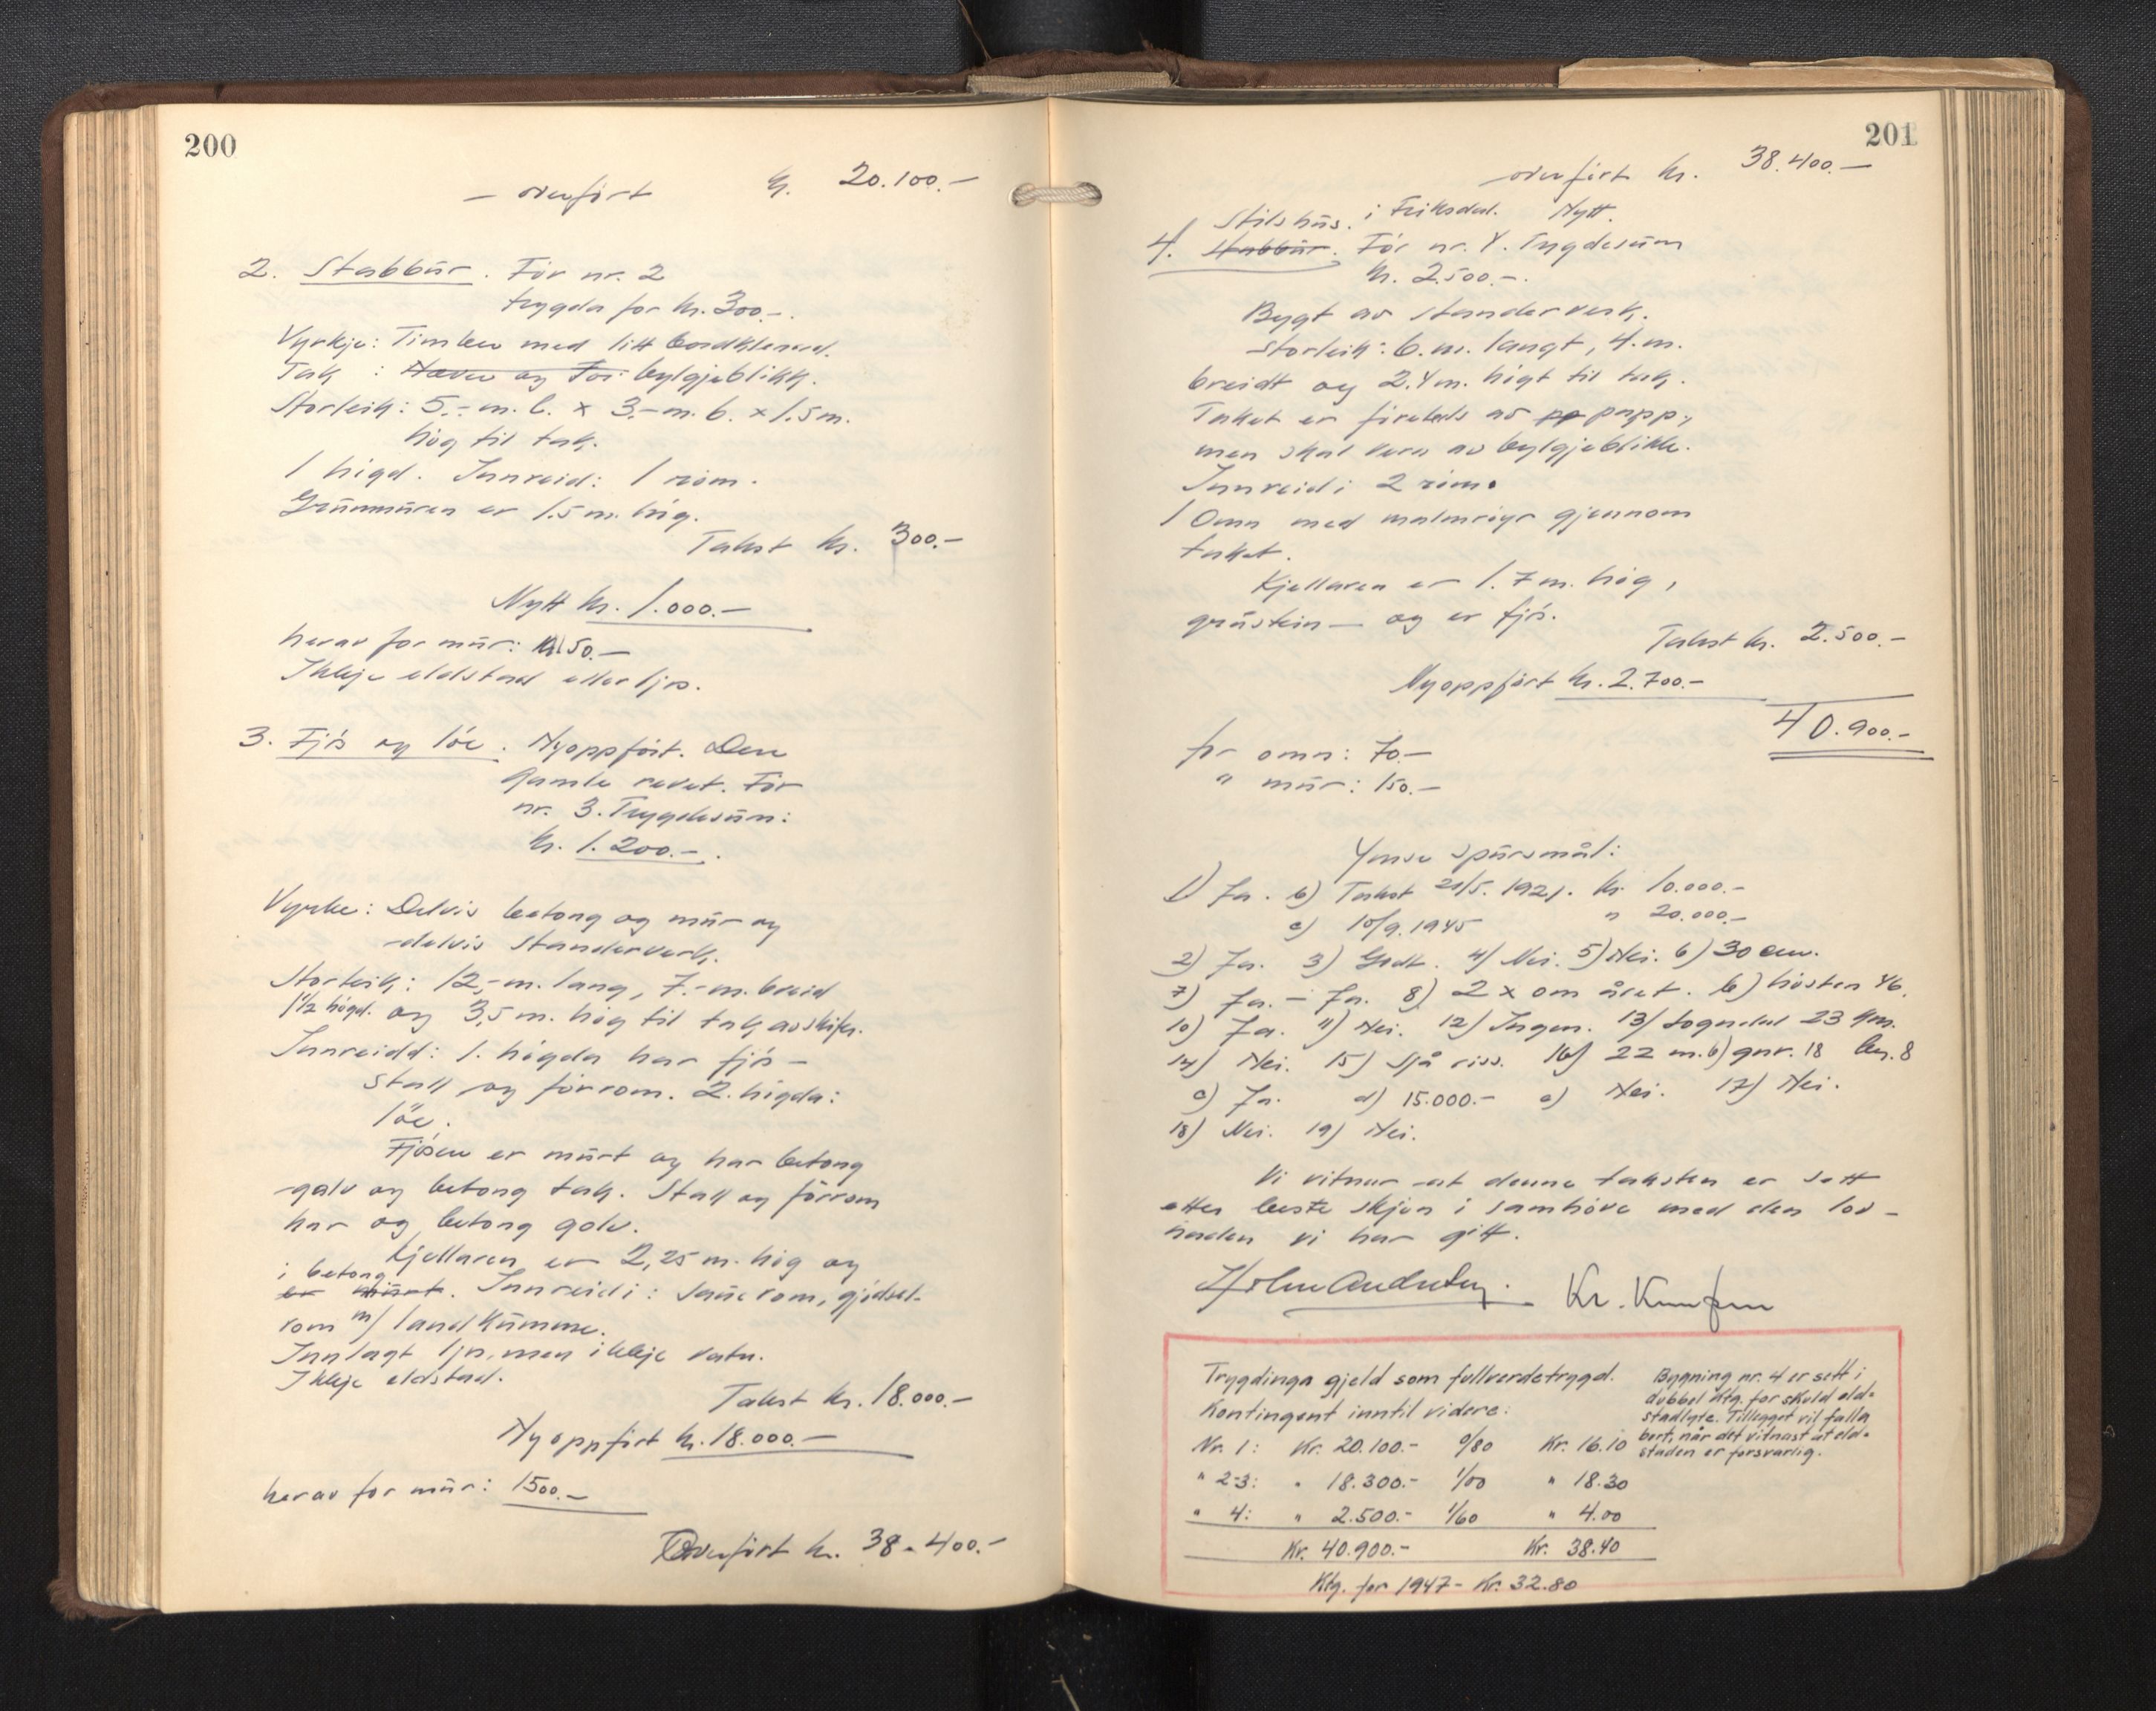 200
— overført kr. 20.100.—
2. Stabbur. Før nr. 2
trygda for kr. 300.—.
Vyrkje: Timber med litt bordklednad.
Tak : Never og Tor bylgjeblikk.
Storleik: 5.- m. l. x 3.- m. b. x 1.5 m.
høg til tak.
1 høgd. Innreid: 1 rom.
Grunnmuren er 1.5 m. høg.
Takst kr. 300.—
Nytt kr. 1.000.—
herav for mur: 150.—
Ikkje eldstad eller ljos.
3. Fjøs og löe. Nyoppført. Den
gamle revet. Før
nr. 3. Trygdesum:
kr. 1.200.—.
Vyrke: Delvis betong og mur og
delvis standerverk.
Storleik: 12,- m. lang, 7.- m. breid
1½ høgd. og 3,5 m. høg til tak av skifer.
Innreidd: 1. høgda har fjøs —
stall og förrom. 2. høgda:
löe.
Fjøsen er murt og har betong
golv og betong tak. Stall og förrom
har og betong golv.
Kjellaren er 2,25 m. høg og
i betong
er murt. Innreidi: Sauerom, gjødsel-
rom m/ landkumme.
Innlagt ljos, men ikkje vatn.
Ikkje eldstad.
Takst kr. 18.000.—
Nyoppført kr. 18.000.—
herav for mur: 1500.—
Overført kr. 38.400.—
201
overført kr. 38.400.—
Stilshus. i Friksdal. Nytt.
4. Stabbur. Før nr. 4. Trygdesum
kr. 2.500.—.
Bygt av standerverk.
Storleik: 6. m. langt, 4. m.
breidt og 2.4 m. høgt til tak.
Taket er førebels av pp papp,
men skal vera av bylgjeblikk.
Innreidi 2 rom.
1 Omn med malmrøyr gjennom
taket.
Kjellaren er 1.7 m. høg,
gråstein — og er fjøs.
Takst kr. 2.500.—
Nyoppført kr. 2.700.—
40.900.—
for omn: 70.—
" mur: 150.—
Ymse spursmål:
1) Ja. b) Takst 21/5. 1921. kr. 10.000.—
c) 10/9. 1945 " 20.000.—
2) Ja. 3) Godt. 4) Nei. 5) Nei. 6) 30 cm.
7) Ja. — Ja. 8) 2 x om året. b) hösten 46.
10) Ja. 11) Nei. 12) Ingen. 13) Sogndal 23 km.
14) Nei. 15) Sjå riss. 16) 22 m. b) gnr. 18 bn. 8
c) Ja. d) 15.000.— e) Nei. 17) Nei.
18) Nei. 19) Nei.
Vi vitnar at denne taksten er sett
etter beste skjøn i samhøve med den lov-
naden vi har gitt.
Kr. Knutsen
Trygdinga gjeld som fullverdetrygd.
Kontingent inntil vidare:
Bygning nr. 4 er sett i
dobbel ktg. for skuld eld-
stadlyte. Tillegget vil falla
bort, når det vitnast at eld-
staden er forsvarlig.
Nr. 1: Kr. 20.100.- 0/80 Kr. 16.10
" 2-3: " 18.300.- 1/00 " 18.30
" 4: " 2.500.- 1/60 " 4.00
Kr. 40.900.- Kr. 38.40
Ktg. for 1947 - Kr. 32.80